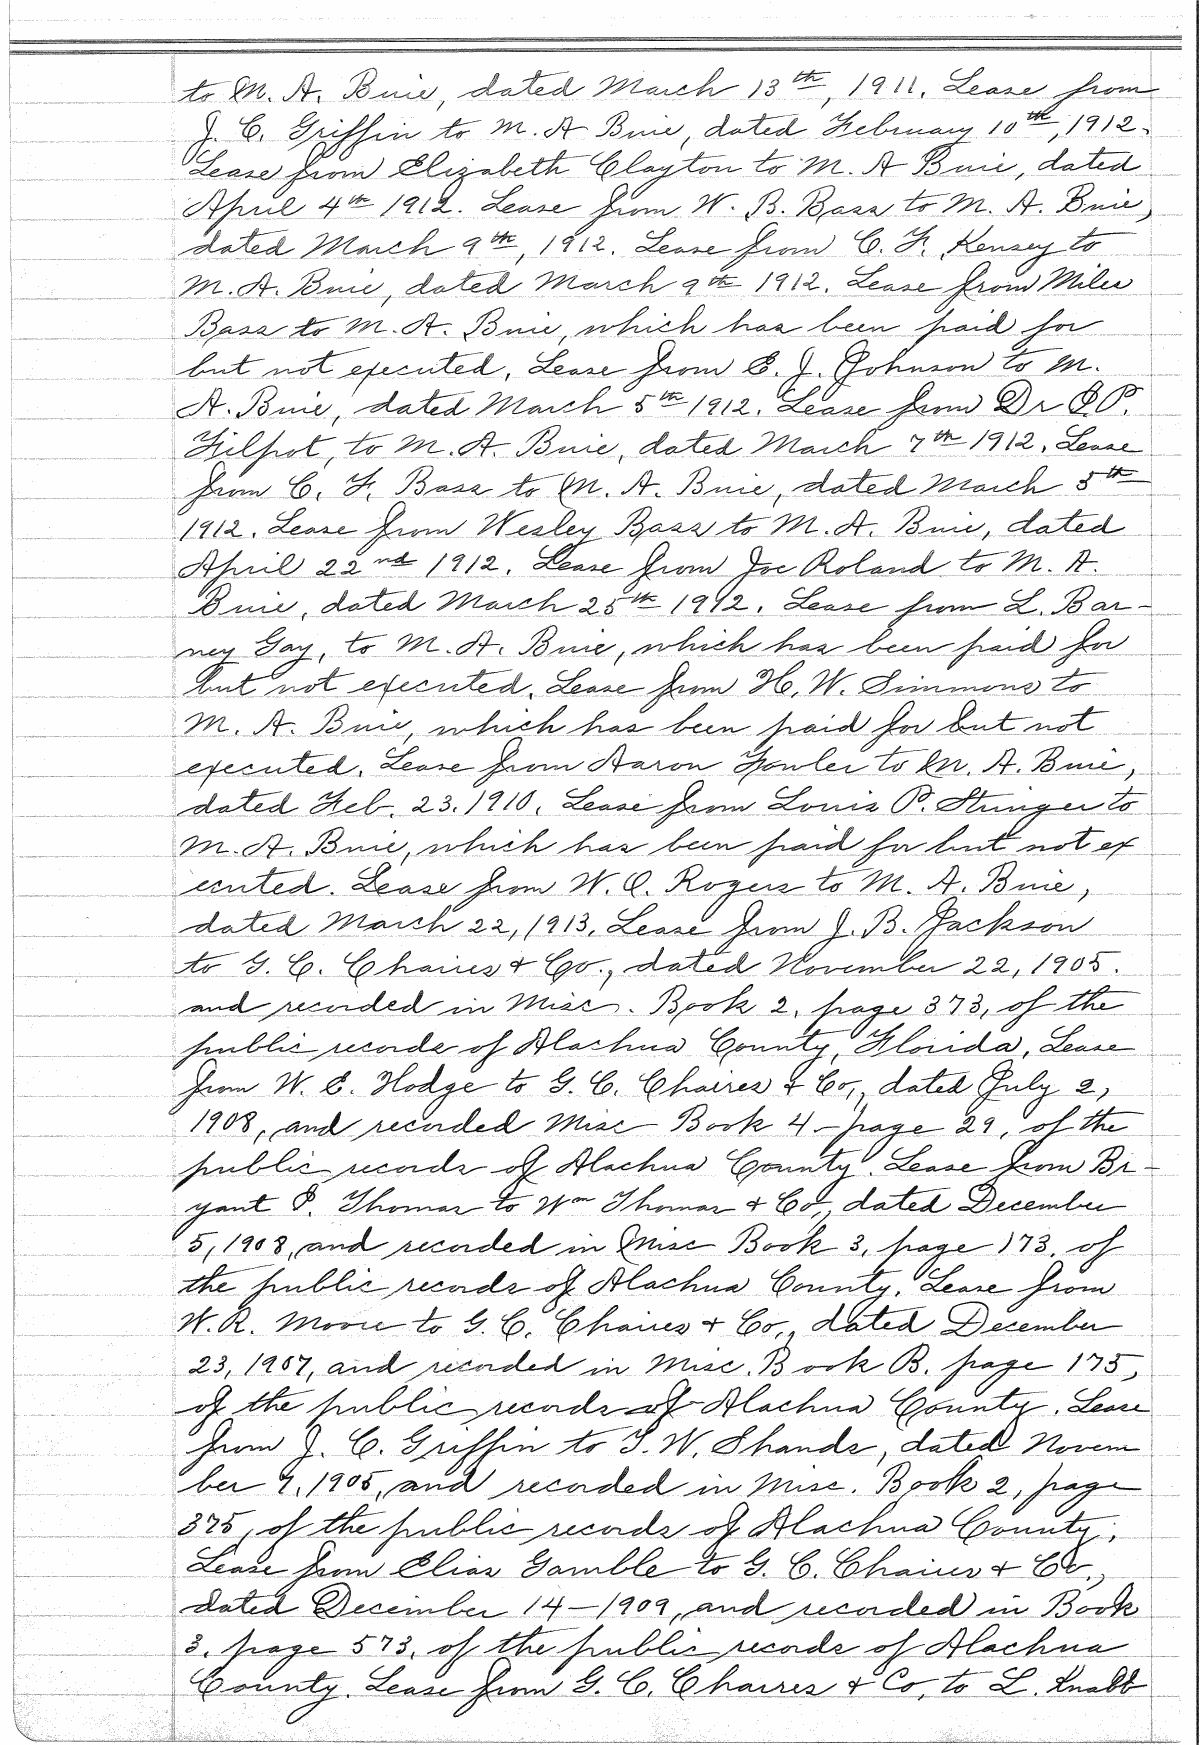 to M. A. Buie, dated March 13th, 1911. Lease from
J. C. Griffin to M. A Buie, dated February 10th, 1912.
Lease from Elizabeth Clayton to M. A Buie, dated
April 4th 1912. Lease from W. B. Bass to M. A. Buie,
dated March 9th, 1912. Lease from C. F. Kensey to
M. A. Buie, dated March 9th 1912. Lease from Miles
Bass to M. A. Buie, which has been paid for
but not executed. Lease from E. J. Johnson to M.
A. Buie, dated March 5th 1912. Lease from Dr
Filpot, to M. A. Buie, dated March 7th 1912. Lease
from C. F. Bass to M. A. Buie, dated March 5th
1912. Lease from Wesley Bass to M. A. Buie, dated
April 22nd 1912. Lease from Joe Roland to M. A.
Buie, dated March 25th 1912. Lease from L. Bar-
ney Gay, to M. A. Buie, which has been paid for
but not executed. Lease from H. W. Simmons to
M. A. Buie, which has been paid for but not
executed. Lease from Aaron Fowler to M. A. Buie,
dated Feb. 23. 1910. Lease from Louis P. Stringer to
M. A. Buie, which has been paid for but not ex
ecuted. Lease from W. O. Rogers to M. A. Buie,
dated March 22, 1913. Lease from J. B. Jackson
to G. C. Chaires & Co., dated November 22, 1905.
and recorded in Misc. Book 2, page 373, of the
public records of Alachua County, Florida, Lease
from W. E. Hodge to G. C. Chaires & Co., dated July 2,
1908, and recorded Misc Book 4 - page 29, of the
public records of Alachua County. Lease from Br-
yant P. Thomas to Wm Thomas & Co., dated December
5, 1908, and recorded in Misc Book 3, page 173, of
the public records of Alachua County. Lease from
W. R. Moore to G. C. Chaires & Co., dated December
23, 1907, and recorded in Misc. Book B. page 175,
of the public records of Alachua County. Lease
from J. C. Griffin to T. W. Shands, dated Novem
ber 7, 1905, and recorded in Misc. Book 2, page
375, of the public records of Alachua County.
Lease from Elias Gamble to G. C. Chaires & Co.,
dated December 14 - 1909, and recorded in Book
3, page 573, of the public records of Alachua
County. Lease from G. C. Chaires & Co, to L. Knabb